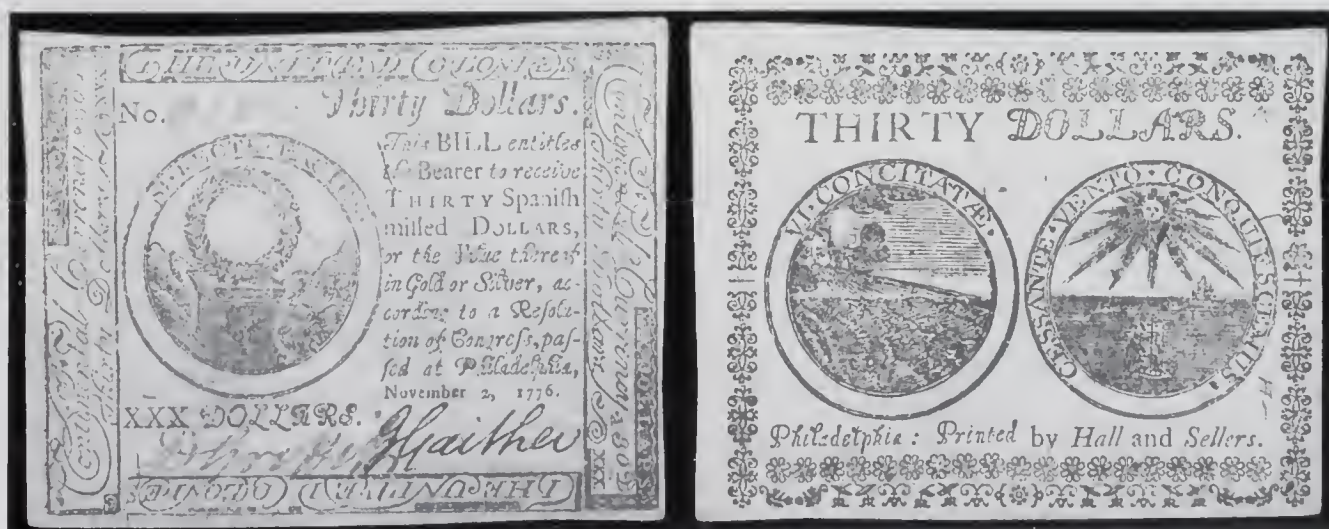 THE UNITED COLONIES
No.
Thirty Dollars.
This BILL entitles
the Bearer to receive
THIRTY Spanish
milled DOLLARS,
or the Value thereof
in Gold or Silver, ac-
cording to a Resolu-
tion of Congress, pas-
sed at Philadelphia,
November 2, 1776.
XXX DOLLARS.
JGaither
THE UNITED COLONIES
Continental Currency
Thirty Dollars
Continental Currency
Thirty Dollars
THIRTY DOLLARS.
VI·CONCITATÆ·
CESSANTE·VENTO·CONQUIESCEMUS·
Philadelphia: Printed by Hall and Sellers.